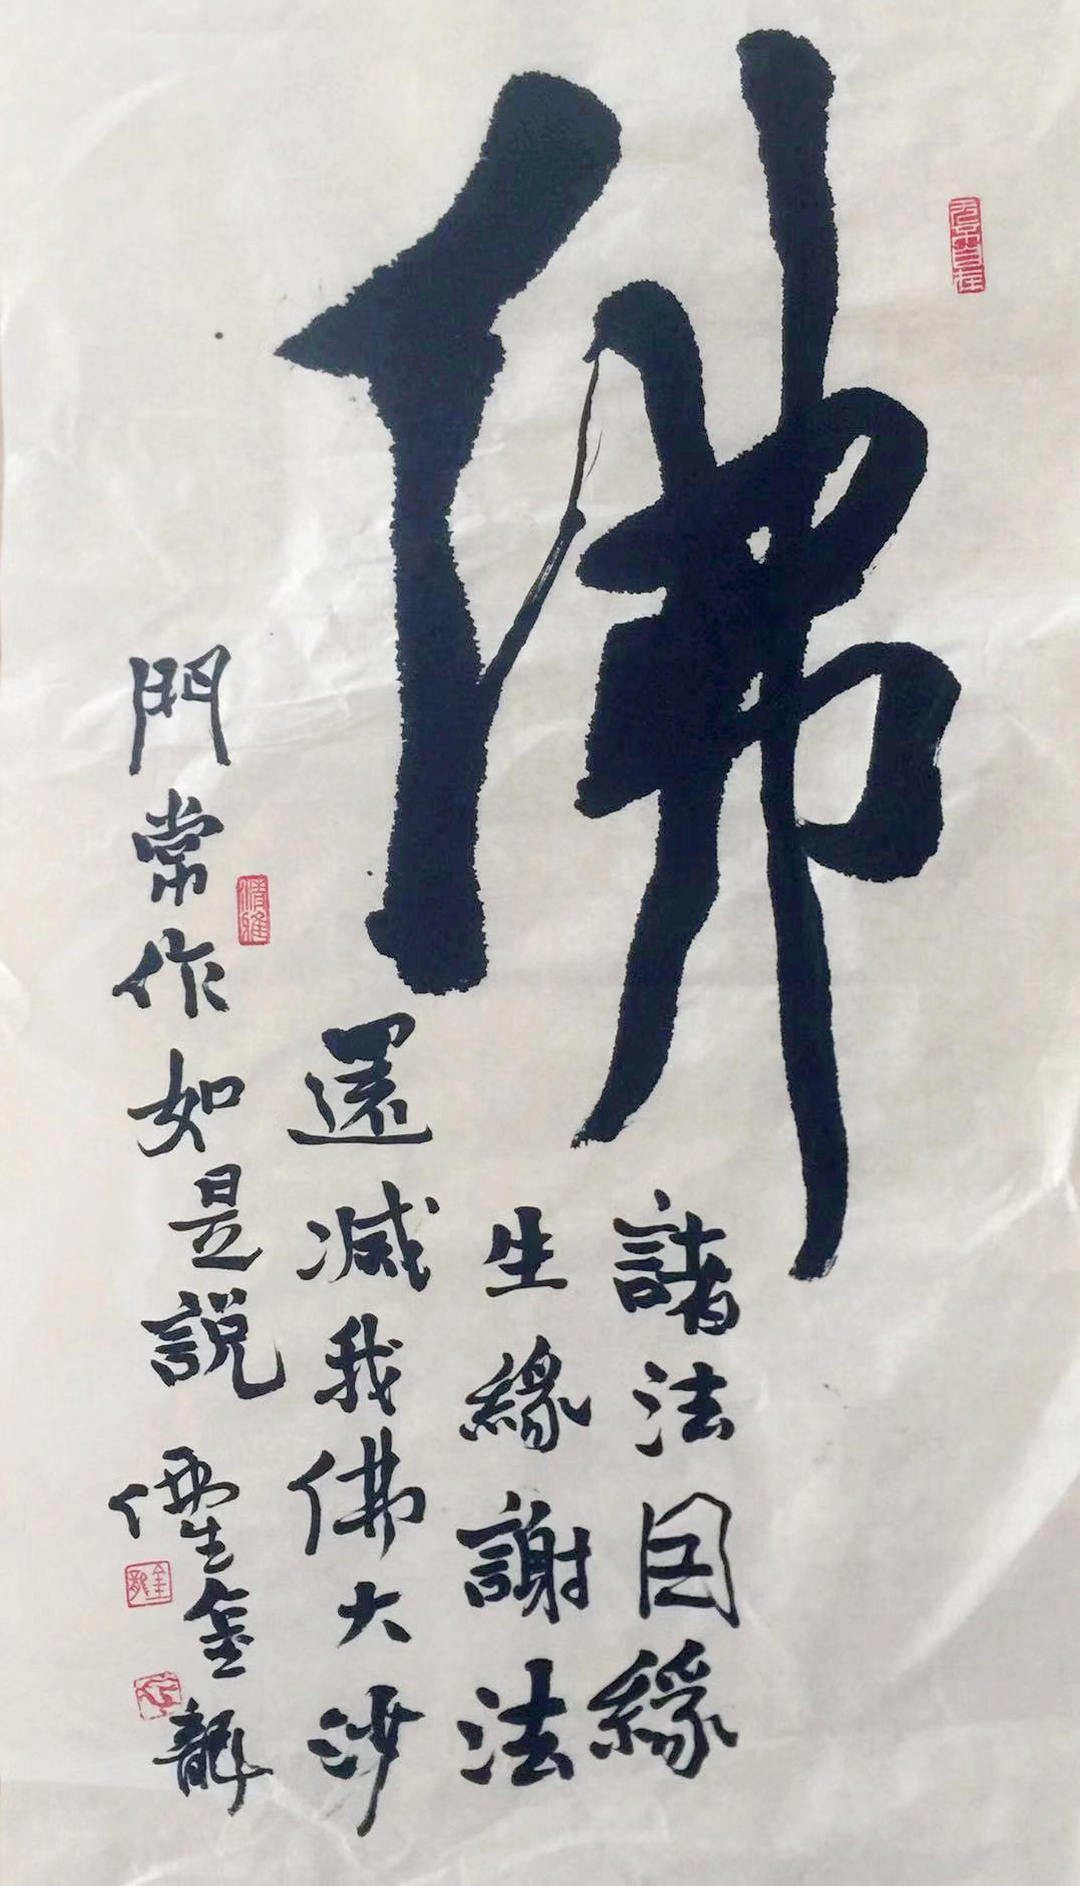 佛
諸法因緣
生緣謝法
還减我佛大沙
門常作如是說 金龍
清雅